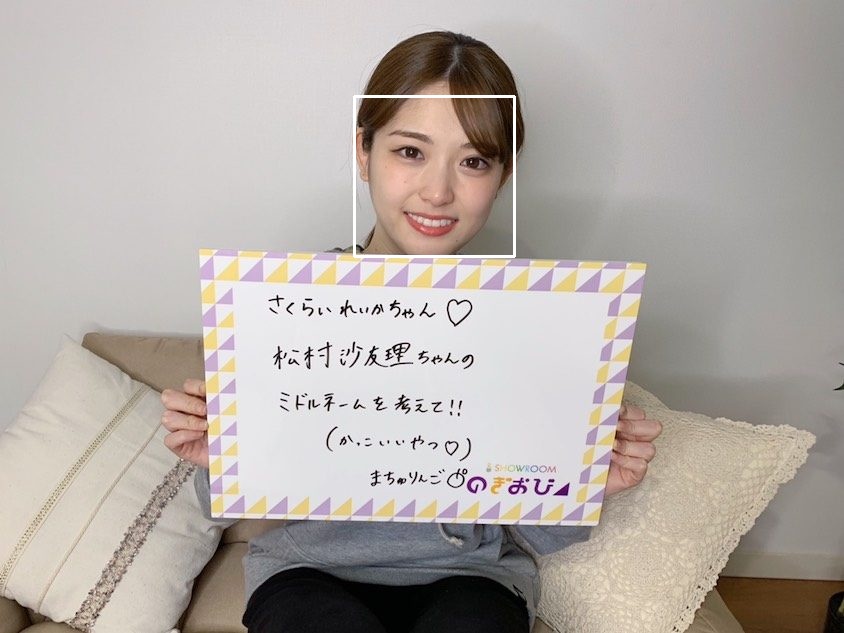 さくらいれいかちゃん♡
松村沙友理ちゃんの
ミドルネームを考えて!!
(かっこいいやつ♡)
まちゅりんご
SHOWROOM
のぎおび